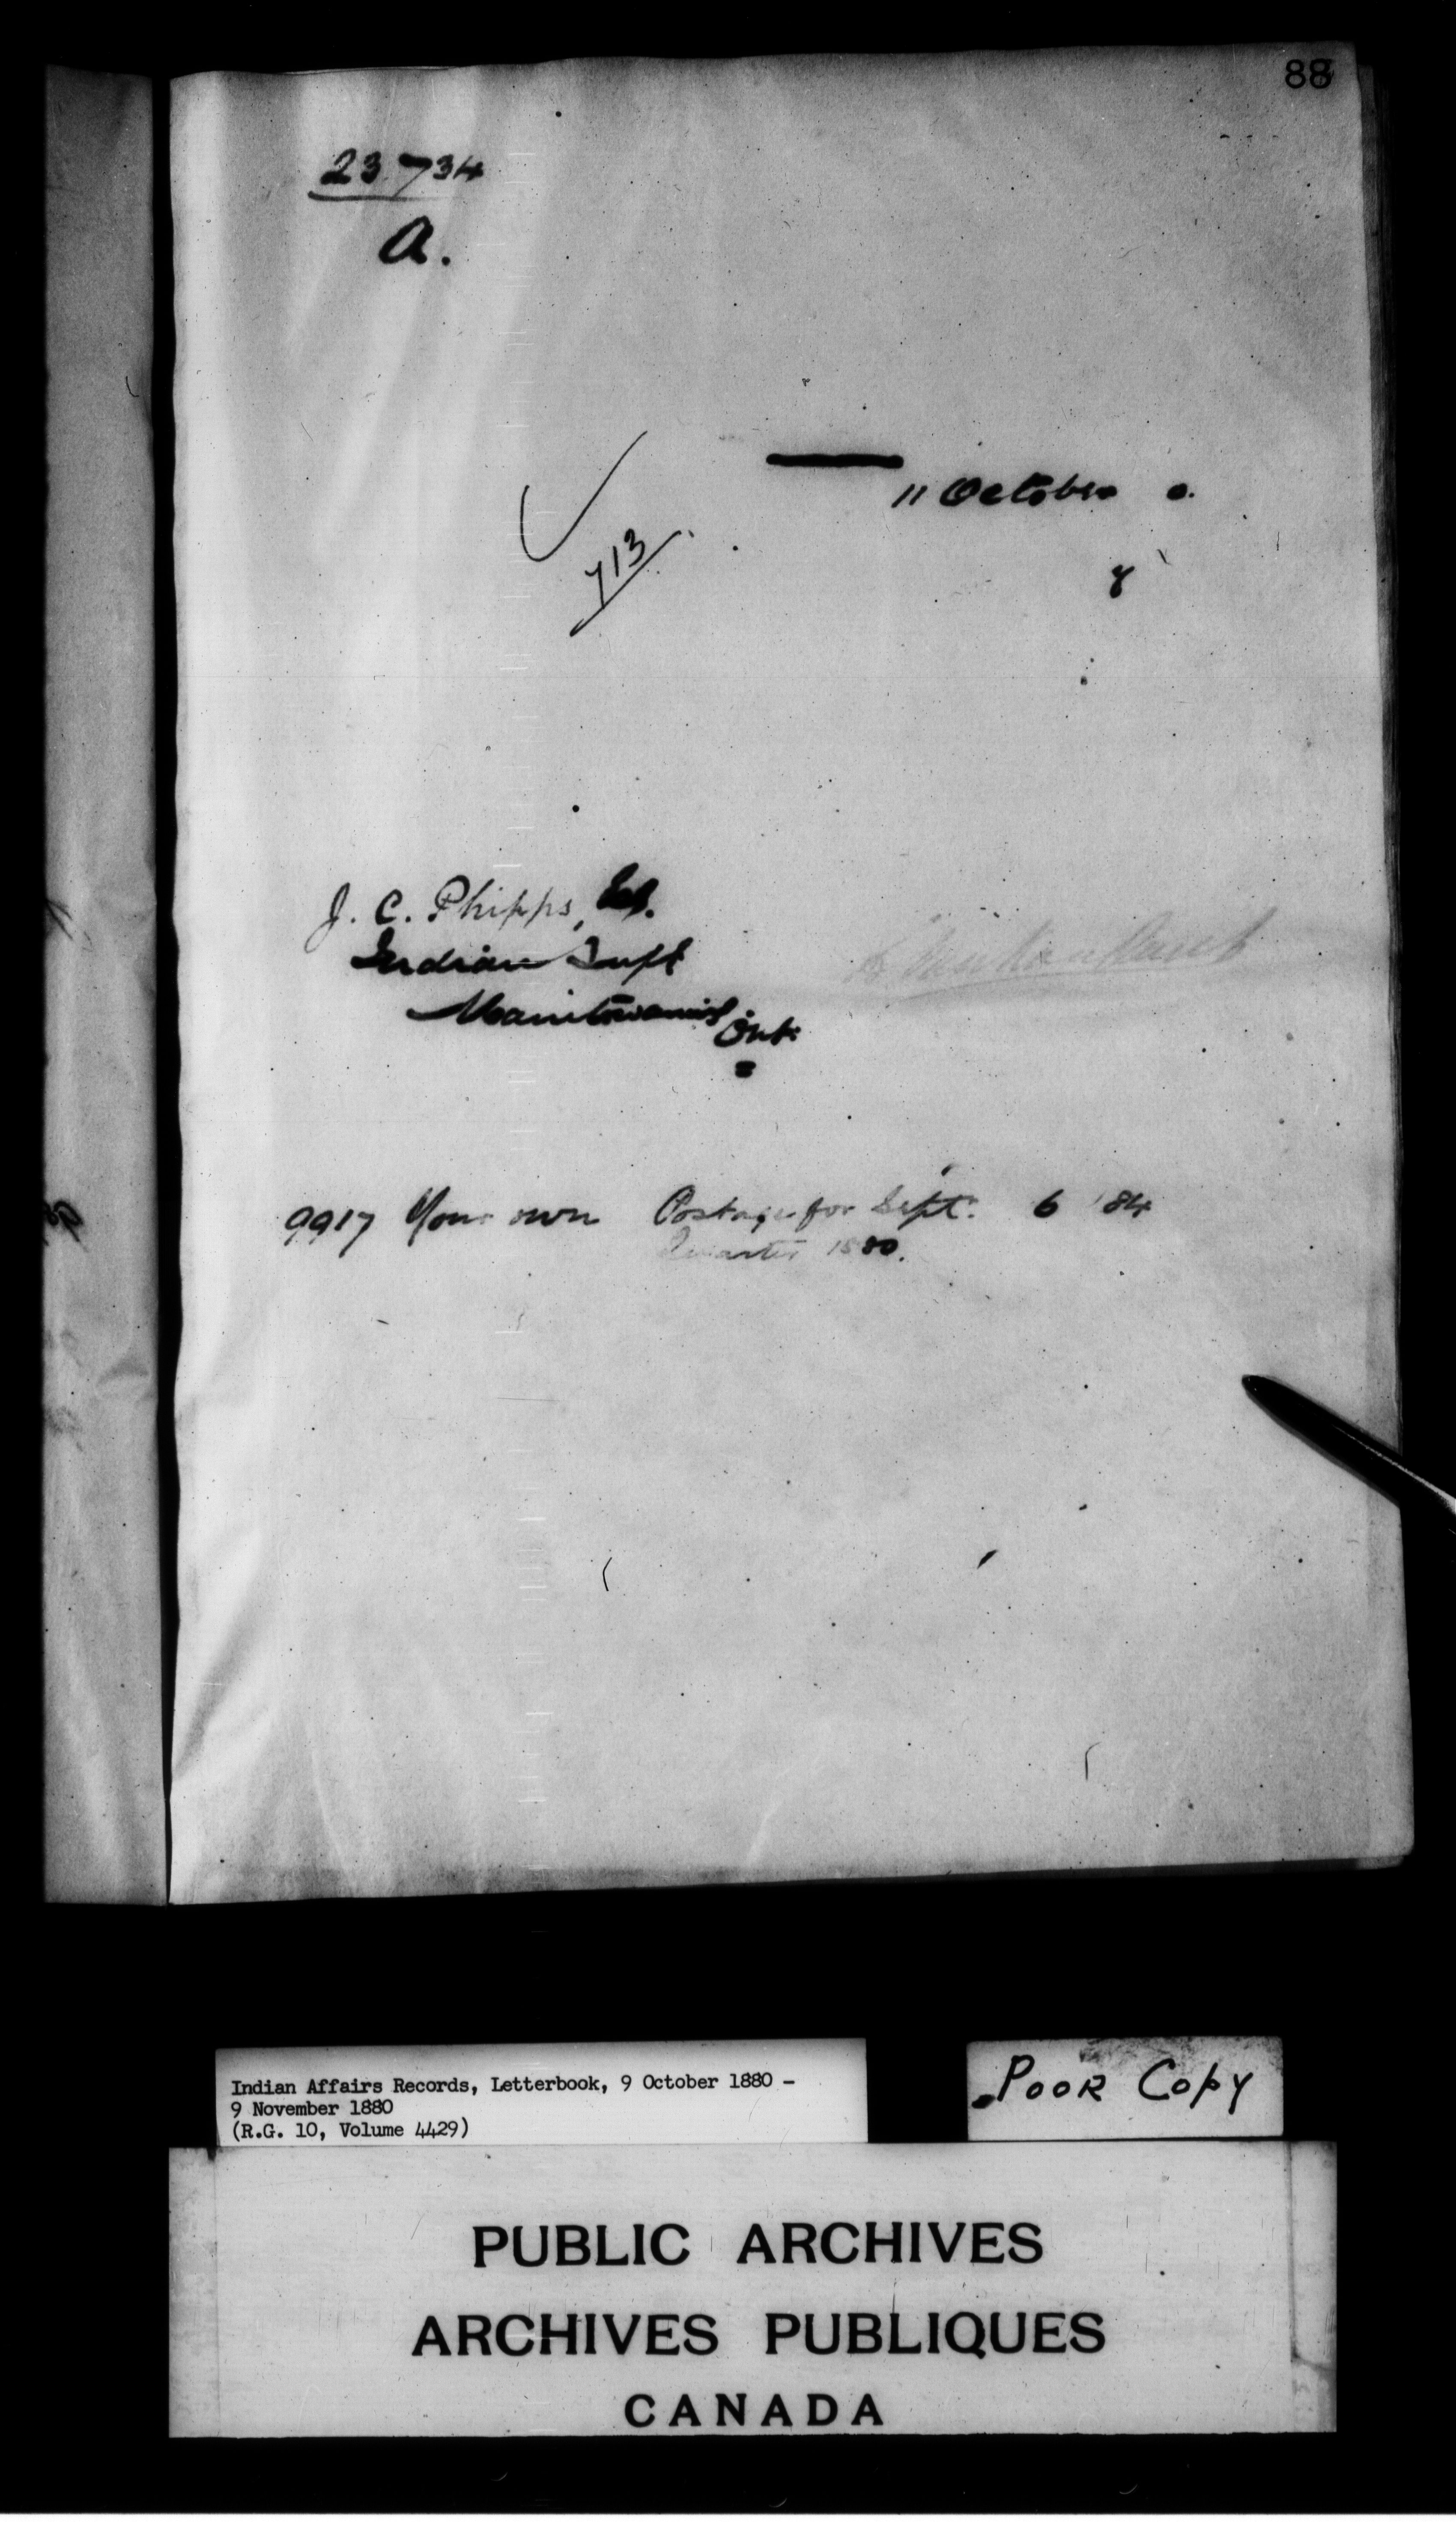 88
23.734
A.
11 October 0.
713
8
J. C. Phipps, Esq.
Indian Supt
Manitowaning
Ont.
9917 Your own Postage for Sept. 6 84
Quarter 1880.
Indian Affairs Records, Letterbook, 9 October 1880 -
9 November 1880
(R.G. 10, Volume 4429)
Poor Copy
PUBLIC ARCHIVES
ARCHIVES PUBLIQUES
CANADA